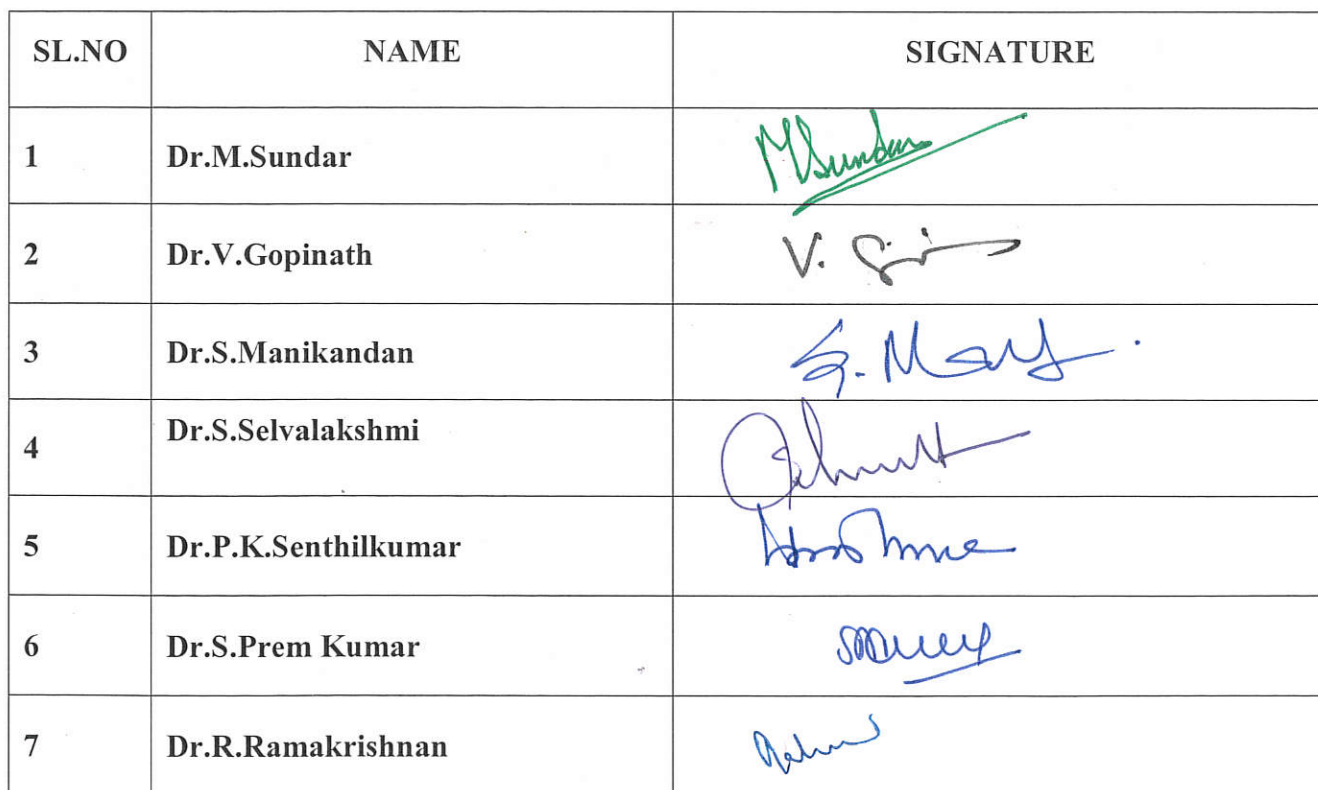 SL.NO NAME SIGNATURE
1 Dr.M.Sundar MSundar
2 Dr.V.Gopinath V.
3 Dr.S.Manikandan S.
4 Dr.S.Selvalakshmi
5 Dr.P.K.Senthilkumar
6 Dr.S.Prem Kumar
7 Dr.R.Ramakrishnan